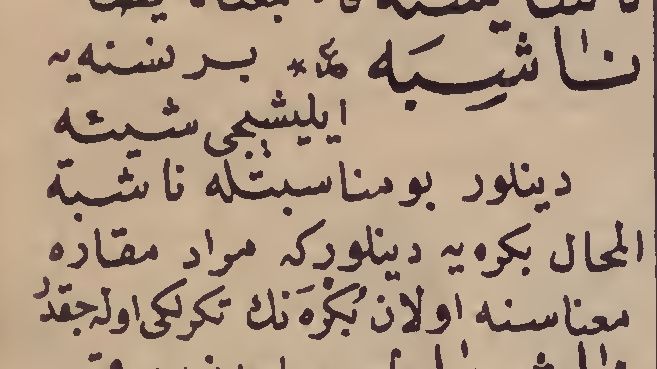 ناشِبَه * بر نسنه‌یه
ایلیشیجی شیئه
دینلور بو مناسبتله ناشبة
المحال بکره‌یه دینلورکه مراد مقاره
معناسنه اولان بُکْرَه‌نك تکرلکی اوله‌جقدر